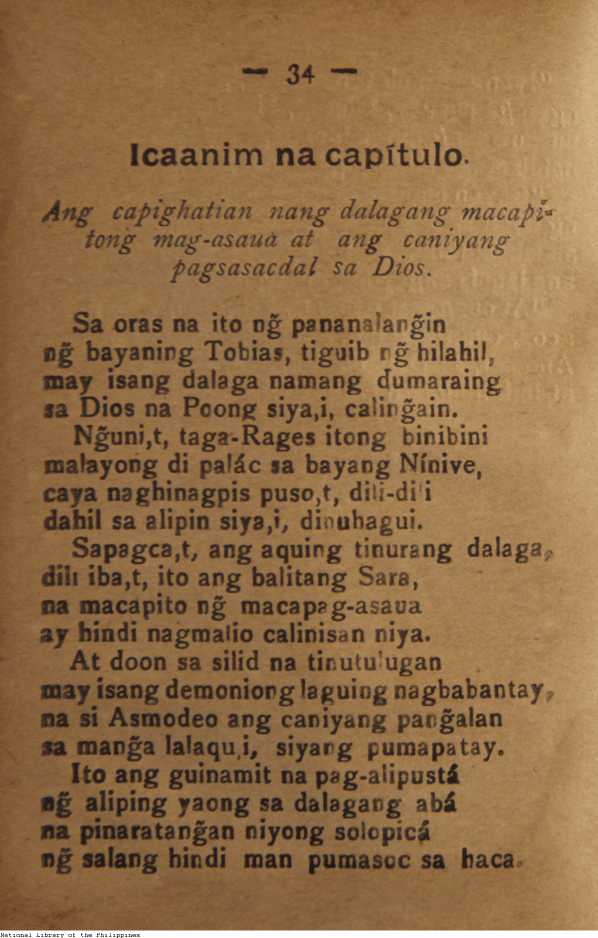 — 34 —
Icaanim na capítulo.
Ang capighatian nang dalagang macapí-
tong mag-asauà at ang caniyang
pagsasacdal sa Dios.
Sa oras na ito ng̃ pananalang̃in
ng̃ bayaning Tobias, tiguib ng̃ hilahil,
may isang dalaga namang dumaraing
sa Dios na Poong siya,i, caling̃ain.
Ng̃uni,t, taga-Rages itong binibini
malayong di palác sa bayang Nínive,
caya naghinagpis puso,t, dili-dili
dahil sa alipin siya,i, dinuhagui.
Sapagca,t, ang aquing tinurang dalaga,
dili iba,t, ito ang balitang Sara,
na macapito ng̃ macapag-asaua
ay hindi nagmalio calinisan niya.
At doon sa silid na tinutulugan
may isang demoniong laguing nagbabantay,
na si Asmodeo ang caniyang pang̃alan
sa mang̃a lalaqu,i, siyang pumapatay.
Ito ang guinamit na pag-alipustá
ng̃ aliping yaong sa dalagang abá
na pinaratang̃an niyong solopicá
ng̃ salang hindi man pumasoc sa haca.
National Library of the Philippines